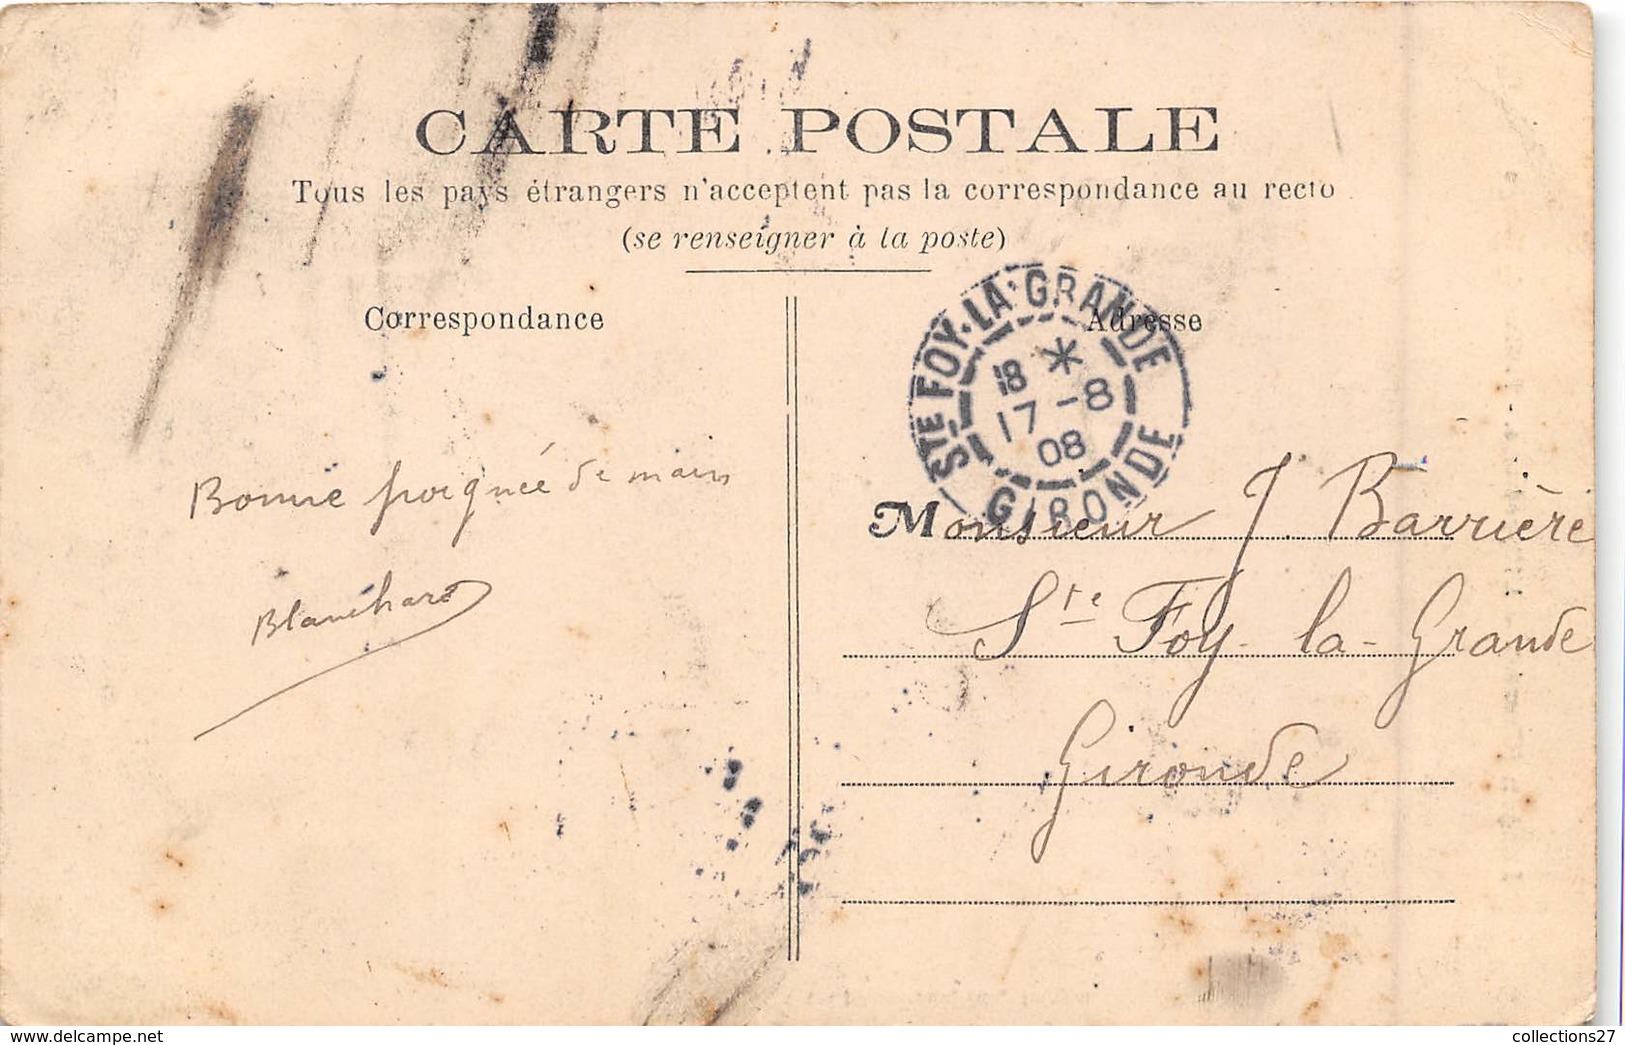 CARTE POSTALE
Tous les pays étrangers n'acceptent pas la correspondance au recto
(se renseigner à la poste)
Correspondance
Adresse
STE FOY-LA-GRANDE
18 *
17-8
08
GIRONDE
Bonne poignée de mains
Blanchard
Monsieur J. Barrière
Ste Foy-la-Grande
Gironde
collections27